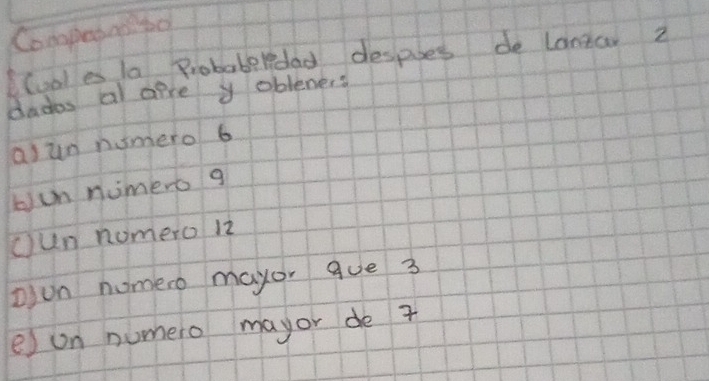 Compromiso
¿Cual es la Probabelidad despues de Lanzar 2
dados al aire y oblener:
a) un numero 6
b) un número 9
c) un numero 12
D) un numero mayor que 3
e) un numero mayor de 7